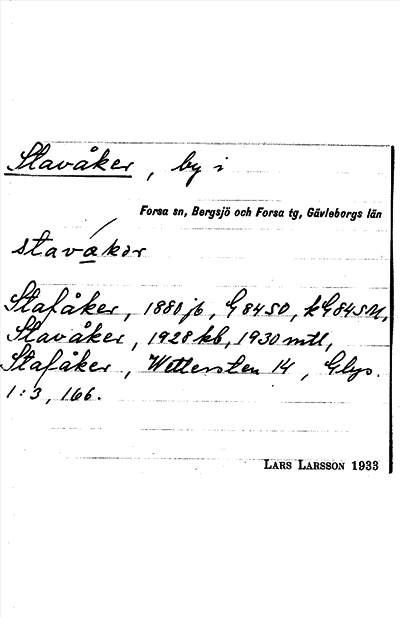 Stavåker, by i
Forsa sn, Bergsjö och Forsa tg, Gävleborgs län
stavakər
Stafåker, 1880 jb, G 84 SO, kG 84 SM,
Stavåker, 1928 kb, 1930 mtl,
Stafåker, Wettersten 14, Glys.
1:3, 166.
LARS LARSSON 1933